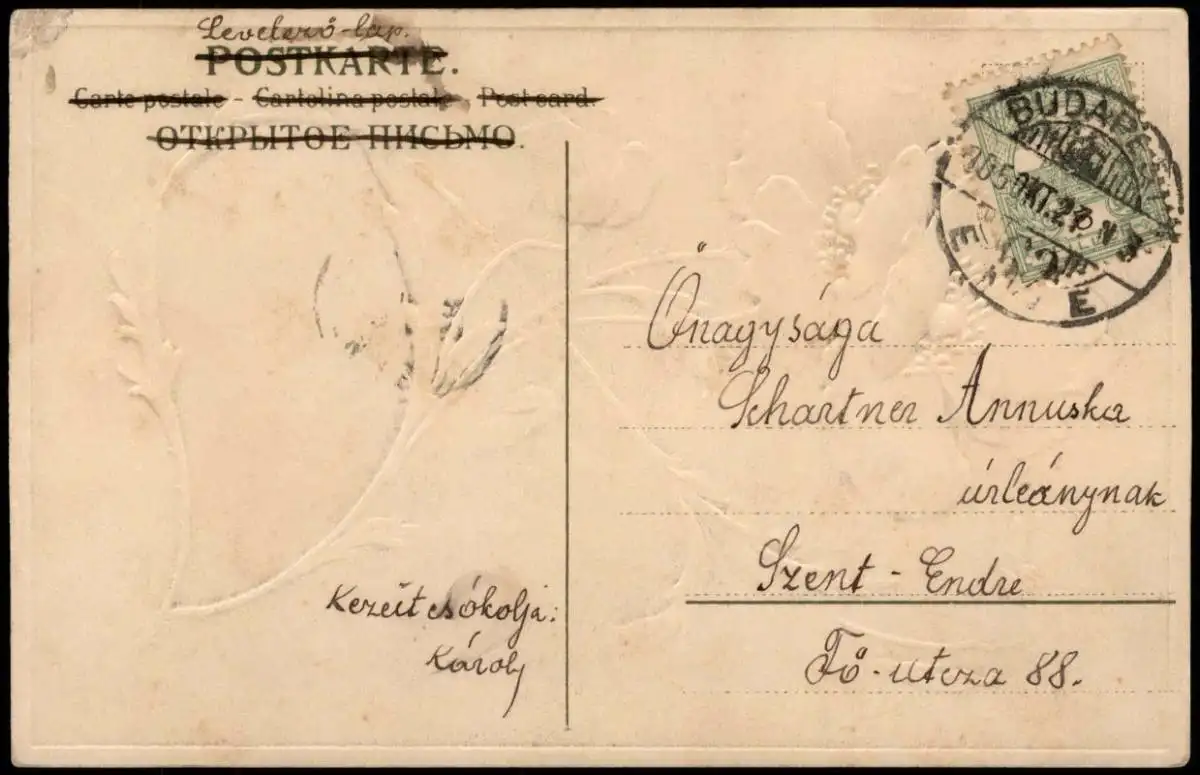 Levelező-lap.
POSTKARTE.
Carte postale - Cartolina postale - Post card.
ОТКРЫТОЕ ПИСЬМО.
BUDAPEST
905 OKT. 27
Őnagysága
Schartner Annuska
úrleánynak
Szent-Endre
Fő-utcza 88.
Kezeit csókolja:
Károly